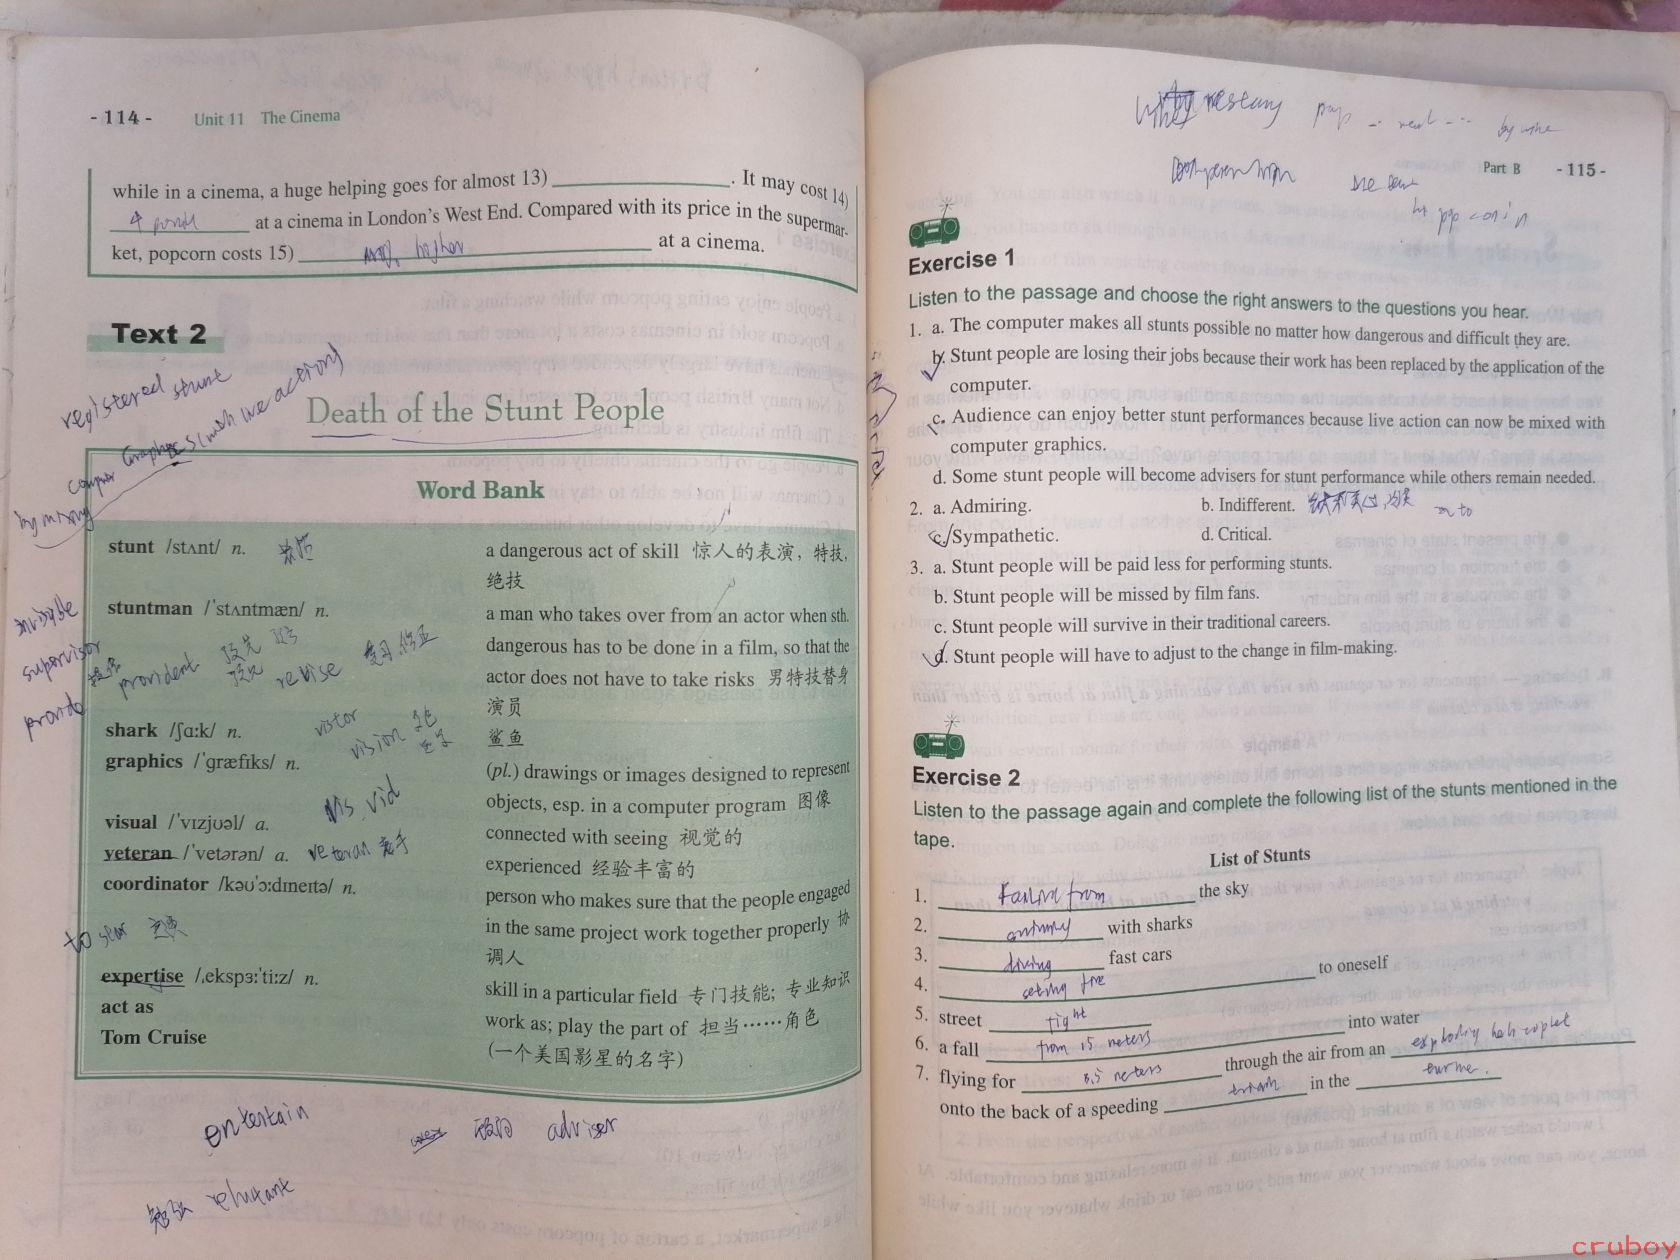 - 114 -
Unit 11 The Cinema
while in a cinema, a huge helping goes for almost 13) ____________. It may cost 14)
____________ at a cinema in London's West End. Compared with its price in the supermar-
ket, popcorn costs 15) higher at a cinema.
Text 2
registered stunt
Death of the Stunt People
Word Bank
stunt /stʌnt/ n.
a dangerous act of skill 惊人的表演，特技，
绝技
stuntman /ˈstʌntmæn/ n.
a man who takes over from an actor when sth.
dangerous has to be done in a film, so that the
actor does not have to take risks 男特技替身
演员
supervisor
provident
revise
shark /ʃɑːk/ n.
鲨鱼
vision
graphics /ˈɡræfiks/ n.
(pl.) drawings or images designed to represent
objects, esp. in a computer program 图像
vis vid
visual /ˈvɪzjʊəl/ a.
connected with seeing 视觉的
veteran /ˈvetərən/ a. veteran 老手
experienced 经验丰富的
coordinator /kəʊˈɔːdɪneɪtə/ n.
person who makes sure that the people engaged
in the same project work together properly 协
调人
expertise /ˌekspɜːˈtiːz/ n.
skill in a particular field 专门技能；专业知识
act as
work as; play the part of 担当……角色
Tom Cruise
(一个美国影星的名字)
entertain
adviser
勉强
Part B
- 115 -
Exercise 1
Listen to the passage and choose the right answers to the questions you hear.
1. a. The computer makes all stunts possible no matter how dangerous and difficult they are.
b. Stunt people are losing their jobs because their work has been replaced by the application of the
computer.
c. Audience can enjoy better stunt performances because live action can now be mixed with
computer graphics.
d. Some stunt people will become advisers for stunt performance while others remain needed.
2. a. Admiring.
b. Indifferent.
c. Sympathetic.
d. Critical.
3. a. Stunt people will be paid less for performing stunts.
b. Stunt people will be missed by film fans.
c. Stunt people will survive in their traditional careers.
d. Stunt people will have to adjust to the change in film-making.
Exercise 2
Listen to the passage again and complete the following list of the stunts mentioned in the
tape.
List of Stunts
1. from the sky
2. ____________ with sharks
3. ____________ fast cars
4. ____________ to oneself
5. street fight
6. a fall from 15 meters into water
7. flying for meters through the air from an ____________
onto the back of a speeding ____________ in the ____________
cruboy